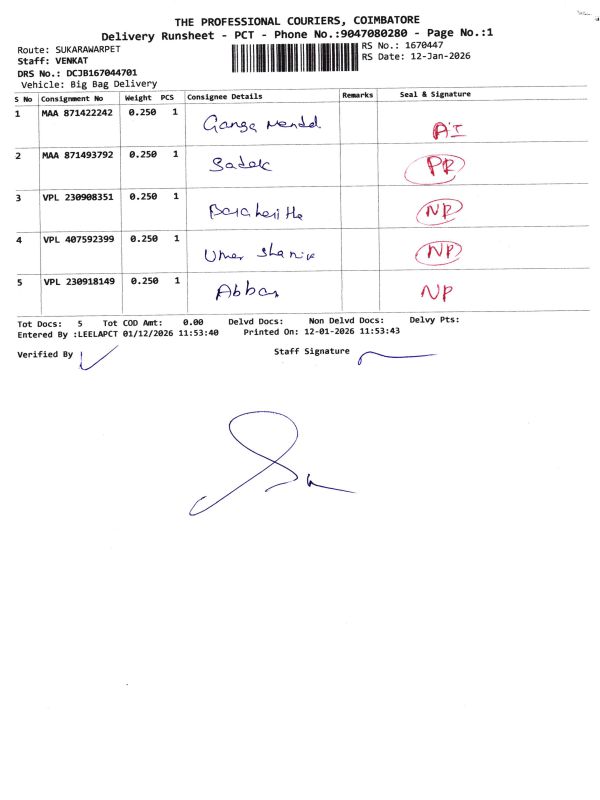 THE PROFESSIONAL COURIERS, COIMBATORE
Delivery Runsheet - PCT - Phone No.:9047080280 - Page No.:1
Route: SUKARAWARPET
RS No.: 1670447
Staff: VENKAT
RS Date: 12-Jan-2026
DRS No.: DCJB167044701
Vehicle: Big Bag Delivery
S No Consignment No Weight PCS Consignee Details Remarks Seal & Signature
1 MAA 871422242 0.250 1 Ganga
2 MAA 871493792 0.250 1 Sadek PR
3 VPL 230908351 0.250 1 NP
4 VPL 407592399 0.250 1 Umer NP
5 VPL 230918149 0.250 1 Abbas NP
Tot Docs: 5 Tot COD Amt: 0.00 Delvd Docs: Non Delvd Docs: Delvy Pts:
Entered By :LEELAPCT 01/12/2026 11:53:40 Printed On: 12-01-2026 11:53:43
Verified By
Staff Signature